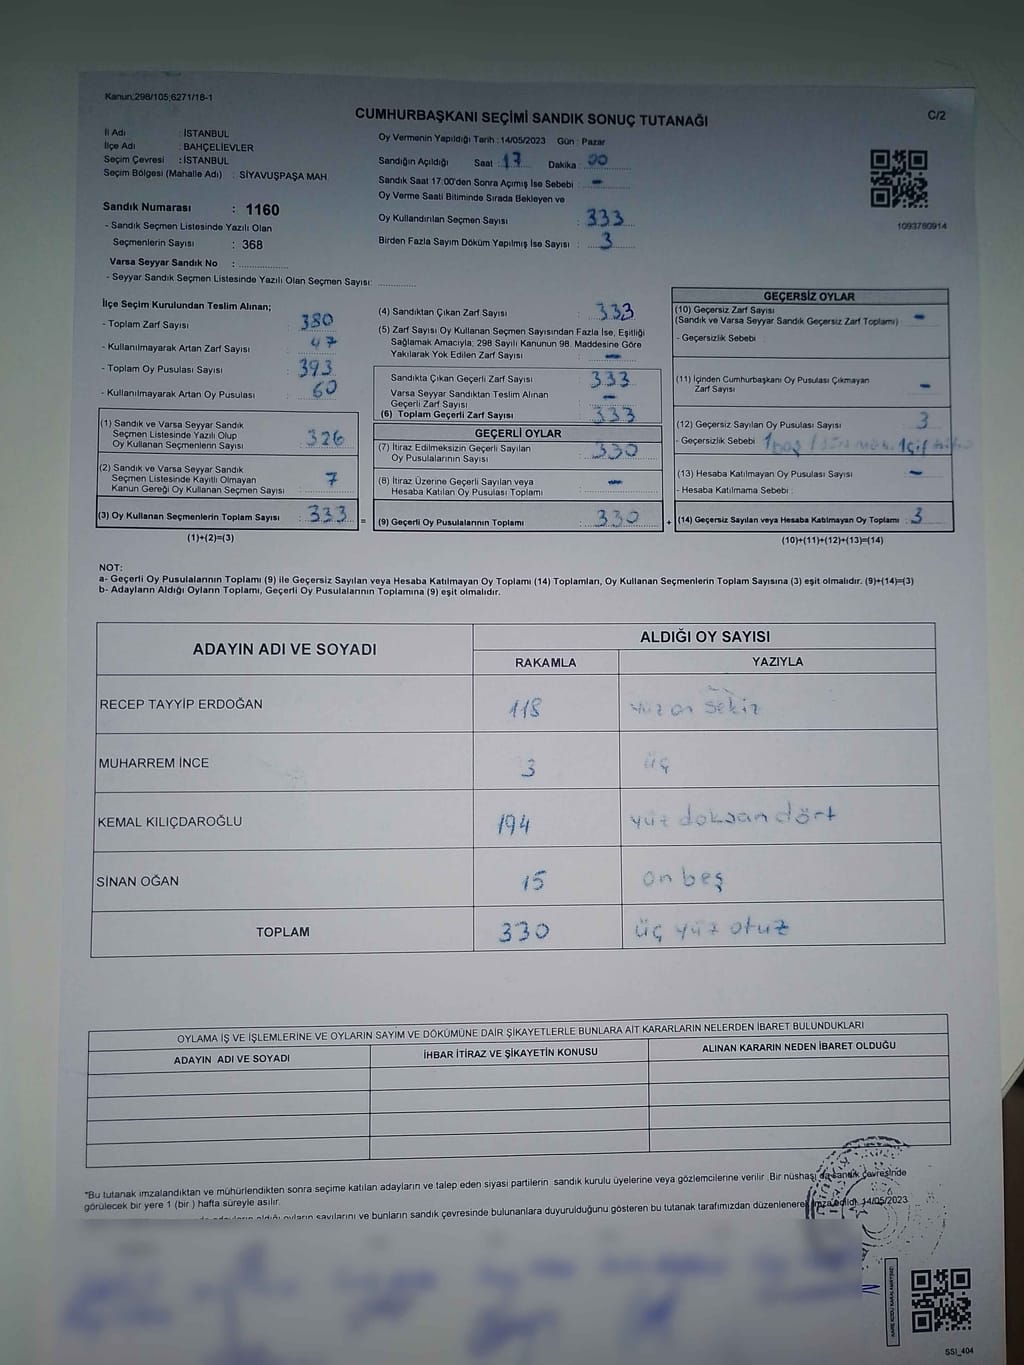 Kanun;298/105;6271/18-1
CUMHURBAŞKANI SEÇİMİ SANDIK SONUÇ TUTANAĞI
C/2
İl Adı : İSTANBUL
İlçe Adı : BAHÇELİEVLER
Seçim Çevresi : İSTANBUL
Seçim Bölgesi (Mahalle Adı) : SİYAVUŞPAŞA MAH.
Oy Vermenin Yapıldığı Tarih : 14/05/2023 Gün : Pazar
Sandığın Açıldığı Saat : 17 Dakika : 00
Sandık Saat 17:00'den Sonra Açımış İse Sebebi : -
Oy Verme Saati Bitiminde Sırada Bekleyen ve
Oy Kullandırılan Seçmen Sayısı : 333
Birden Fazla Sayım Döküm Yapılmış İse Sayısı : 3
1093780914
Sandık Numarası : 1160
- Sandık Seçmen Listesinde Yazılı Olan
Seçmenlerin Sayısı : 368
Varsa Seyyar Sandık No : ................
- Seyyar Sandık Seçmen Listesinde Yazılı Olan Seçmen Sayısı: ............
İlçe Seçim Kurulundan Teslim Alınan;
- Toplam Zarf Sayısı : 380
- Kullanılmayarak Artan Zarf Sayısı : 47
- Toplam Oy Pusulası Sayısı : 393
- Kullanılmayarak Artan Oy Pusulası : 60
(1) Sandık ve Varsa Seyyar Sandık
Seçmen Listesinde Yazılı Olup
Oy Kullanan Seçmenlerin Sayısı : 326
(2) Sandık ve Varsa Seyyar Sandık
Seçmen Listesinde Kayıtlı Olmayan
Kanun Gereği Oy Kullanan Seçmen Sayısı : 7
(3) Oy Kullanan Seçmenlerin Toplam Sayısı : 333 =
(1)+(2)=(3)
(4) Sandıktan Çıkan Zarf Sayısı : 333
(5) Zarf Sayısı Oy Kullanan Seçmen Sayısından Fazla İse, Eşitliği
Sağlamak Amacıyla; 298 Sayılı Kanunun 98. Maddesine Göre
Yakılarak Yok Edilen Zarf Sayısı : -
Sandıkta Çıkan Geçerli Zarf Sayısı : 333
Varsa Seyyar Sandıktan Teslim Alınan
Geçerli Zarf Sayısı : -
(6) Toplam Geçerli Zarf Sayısı : 333
GEÇERLİ OYLAR
(7) İtiraz Edilmeksizin Geçerli Sayılan
Oy Pusulalarının Sayısı : 330
(8) İtiraz Üzerine Geçerli Sayılan veya
Hesaba Katılan Oy Pusulası Toplamı : -
(9) Geçerli Oy Pusulalarının Toplamı : 330 +
GEÇERSİZ OYLAR
(10) Geçersiz Zarf Sayısı
(Sandık ve Varsa Seyyar Sandık Geçersiz Zarf Toplamı) : -
- Geçersizlik Sebebi :
(11) İçinden Cumhurbaşkanı Oy Pusulası Çıkmayan
Zarf Sayısı : -
(12) Geçersiz Sayılan Oy Pusulası Sayısı : 3
- Geçersizlik Sebebi : 1 boş
(13) Hesaba Katılmayan Oy Pusulası Sayısı : -
- Hesaba Katılmama Sebebi :
(14) Geçersiz Sayılan veya Hesaba Katılmayan Oy Toplamı : 3
(10)+(11)+(12)+(13)=(14)
NOT:
a- Geçerli Oy Pusulalarının Toplamı (9) ile Geçersiz Sayılan veya Hesaba Katılmayan Oy Toplamı (14) Toplamları, Oy Kullanan Seçmenlerin Toplam Sayısına (3) eşit olmalıdır. (9)+(14)=(3)
b- Adayların Aldığı Oyların Toplamı, Geçerli Oy Pusulalarının Toplamına (9) eşit olmalıdır.
ADAYIN ADI VE SOYADI ALDIĞI OY SAYISI
RAKAMLA YAZIYLA
RECEP TAYYİP ERDOĞAN 118 yüz on sekiz
MUHARREM İNCE 3 üç
KEMAL KILIÇDAROĞLU 194 yüz doksan dört
SİNAN OĞAN 15 on beş
TOPLAM 330 üç yüz otuz
OYLAMA İŞ VE İŞLEMLERİNE VE OYLARIN SAYIM VE DÖKÜMÜNE DAİR ŞİKAYETLERLE BUNLARA AİT KARARLARIN NELERDEN İBARET BULUNDUKLARI
ADAYIN ADI VE SOYADI İHBAR İTİRAZ VE ŞİKAYETİN KONUSU ALINAN KARARIN NEDEN İBARET OLDUĞU
*Bu tutanak imzalandıktan ve mühürlendikten sonra seçime katılan adayların ve talep eden siyasi partilerin sandık kurulu üyelerine veya gözlemcilerine verilir. Bir nüshası da sandık çevresinde
görülecek bir yere 1 (bir ) hafta süreyle asılır.
oyların sayılarını ve bunların sandık çevresinde bulunanlara duyurulduğunu gösteren bu tutanak tarafımızdan düzenlenerek imza edildi. 14/05/2023
SSI_404